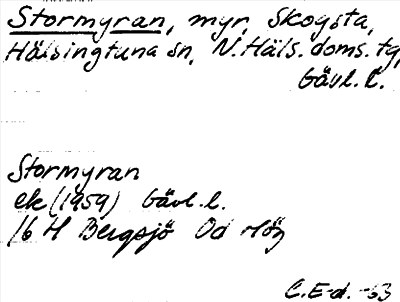 Stormyran, myr, Skogsta,
Hälsingtuna sn, N. Häls. doms. tg,
Gävl. l.
Stormyran
ek (1959) Gävl. l.
16 H Bergsjö Od
C.E-d. -63